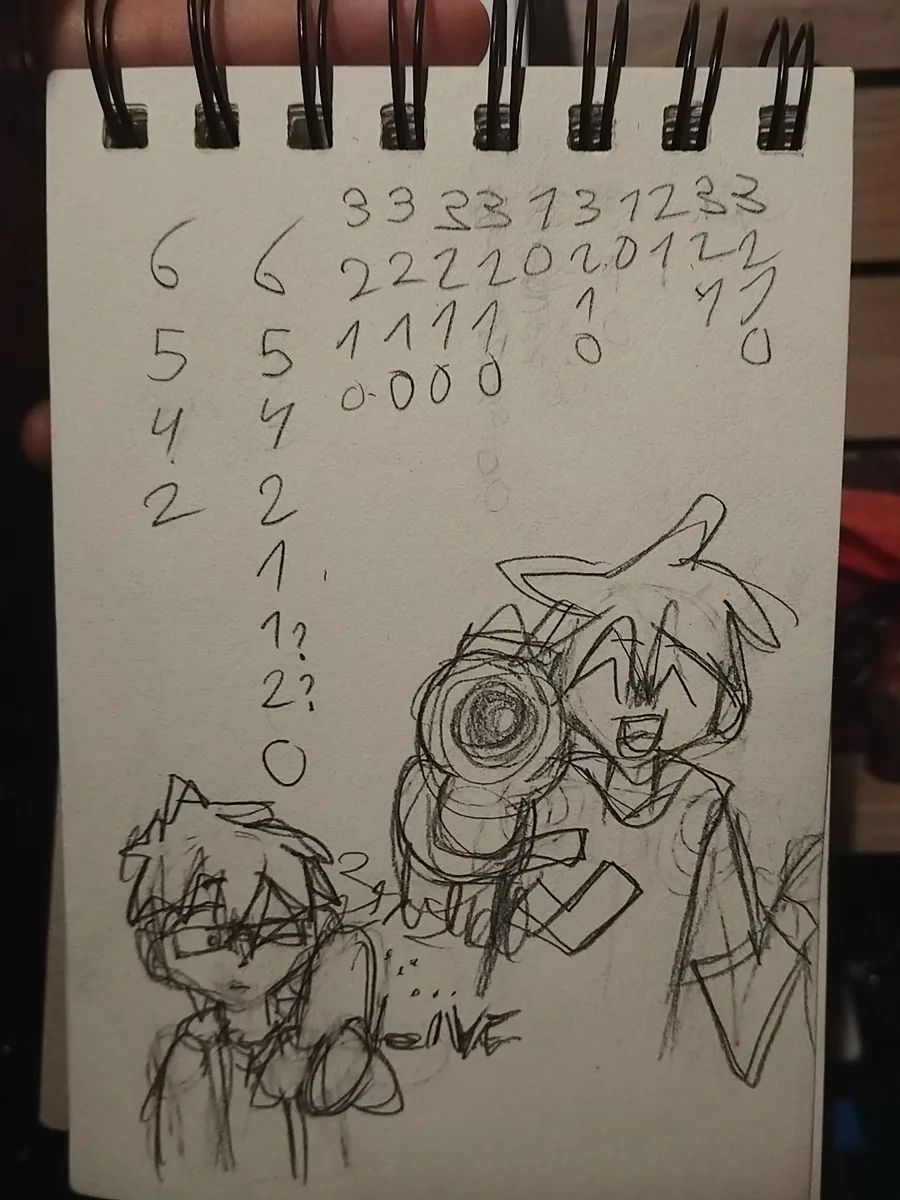 3 3 3 3 1 3 1 2 3 3
6 6 2 2 2 2 0 2. 0 1 2 2
1 1 1 1 1 1 1
5 5 0. 0 0 0 0 0
4 4
2 2
1
1?
2?
0
LIVE